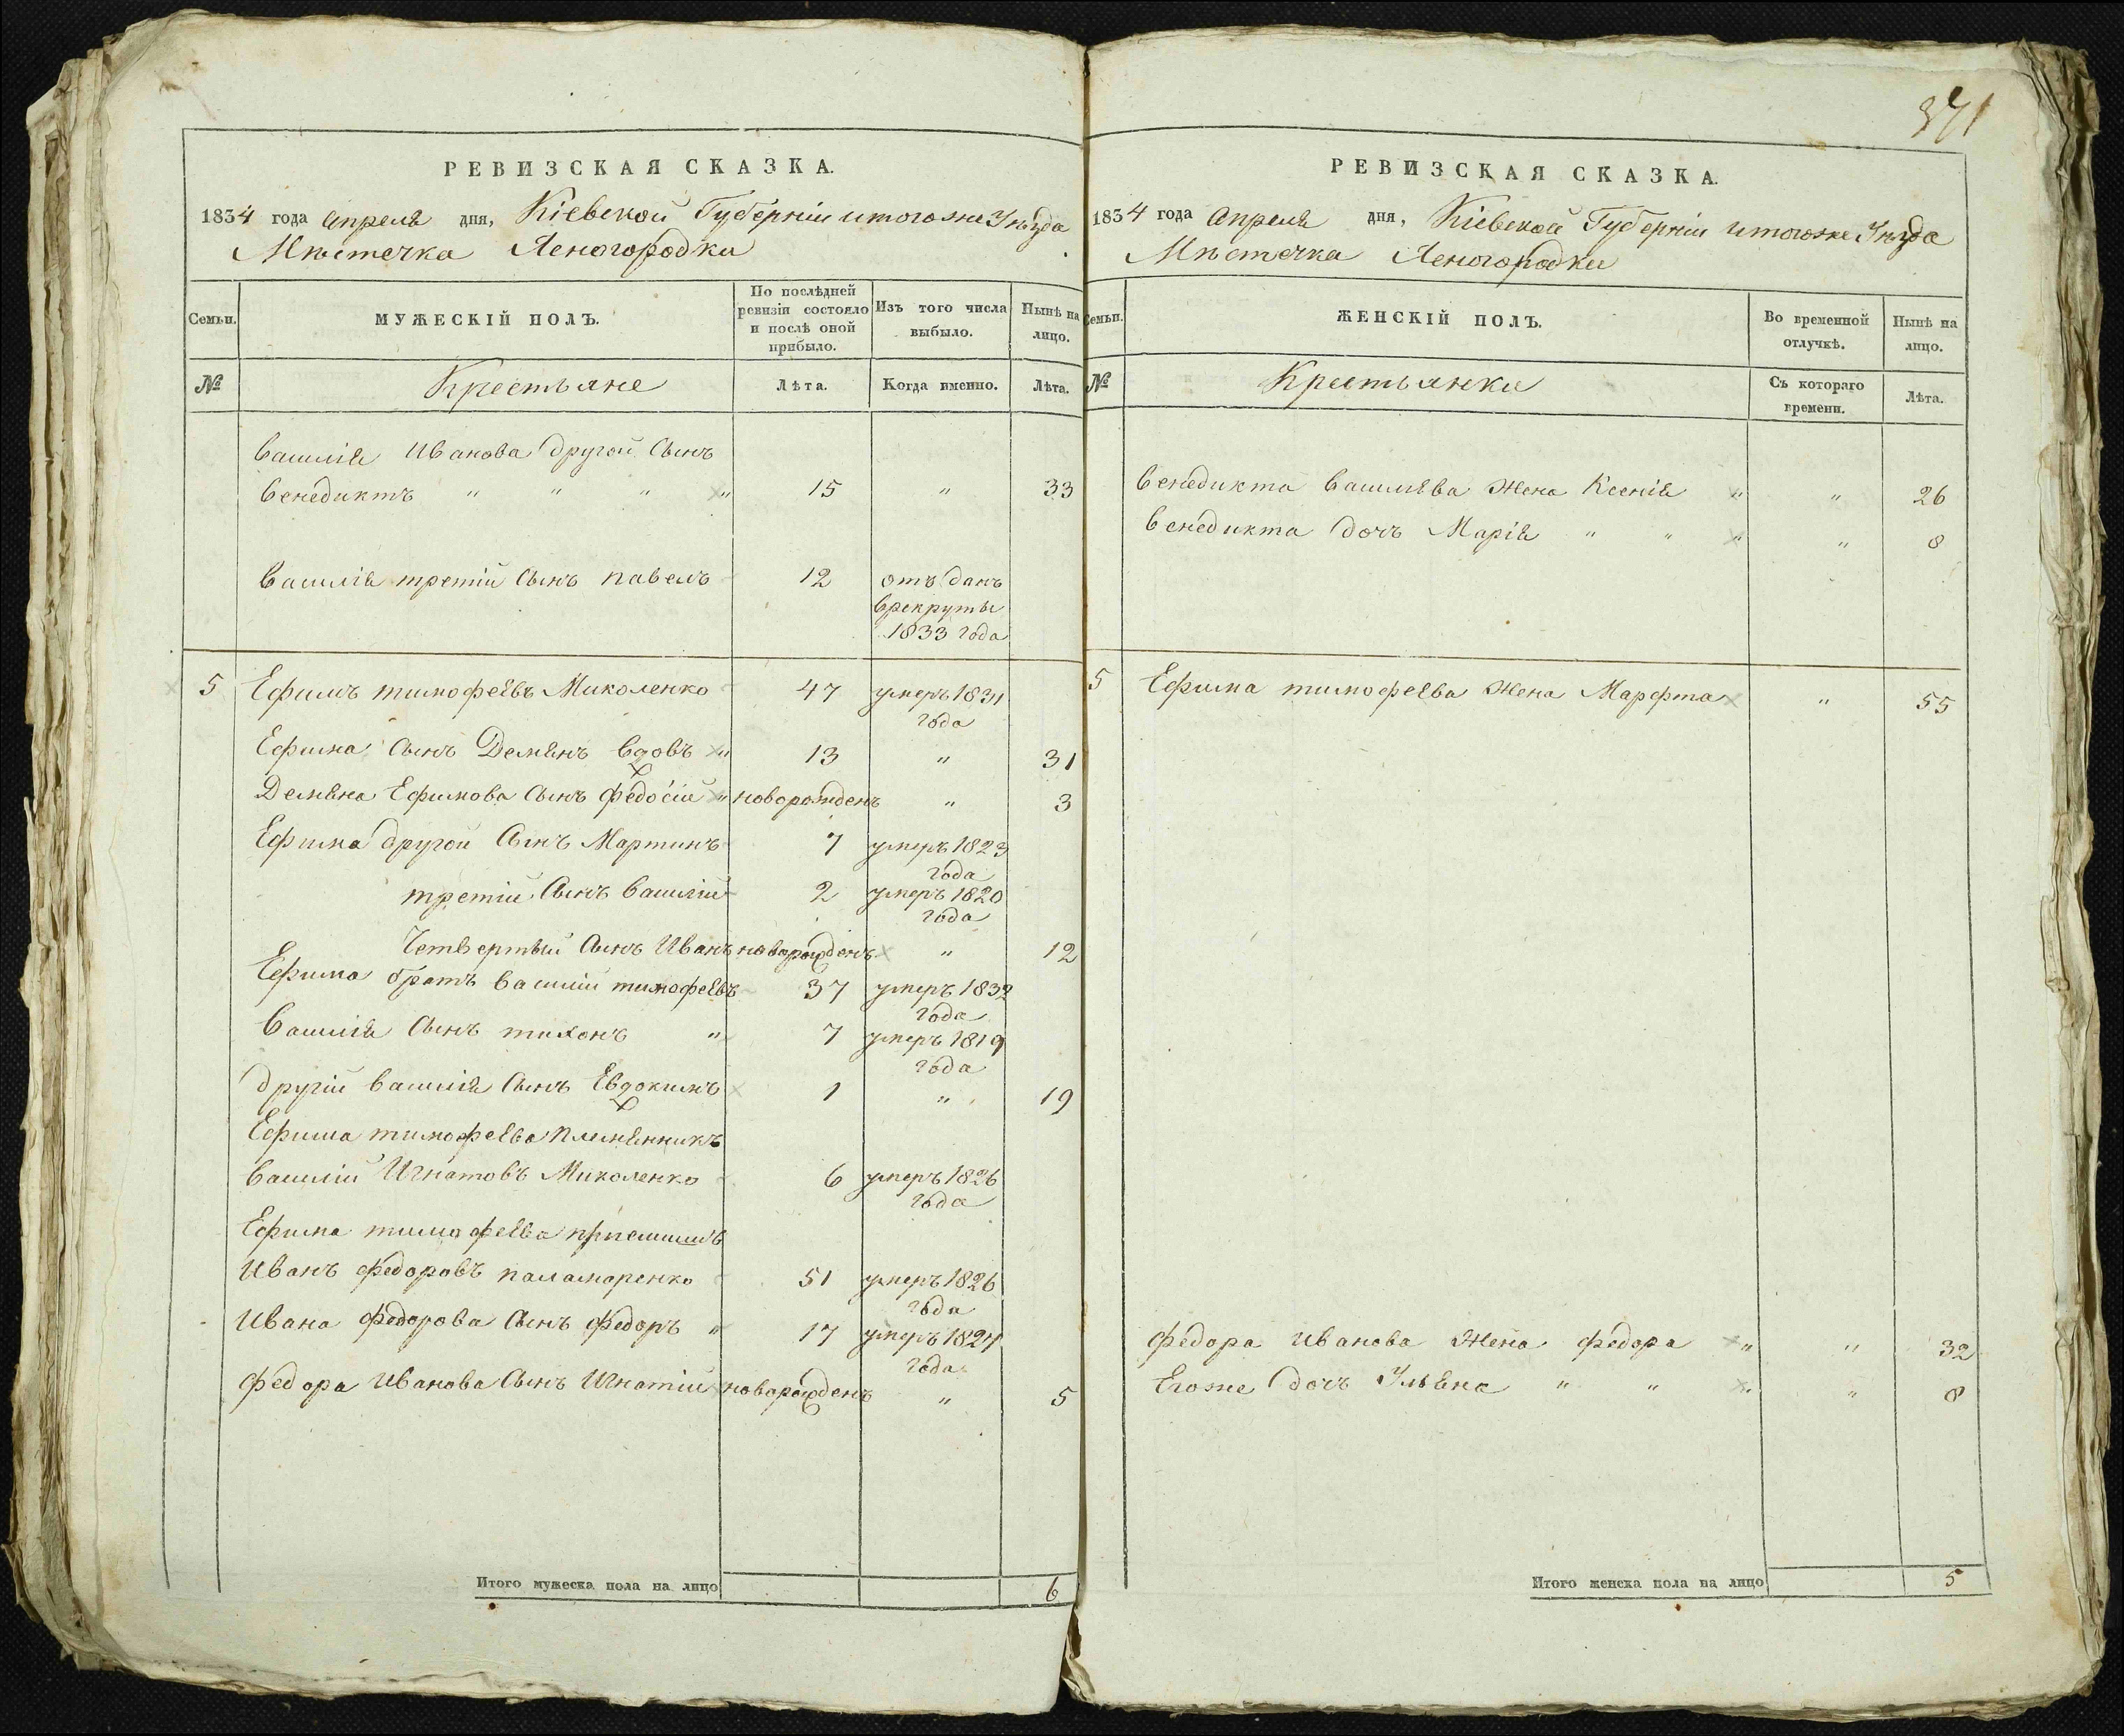 РЕВИЗСКАЯ СКАЗКА.
1834 года Апреля дня, Кіевской Губерніи итогоже Уѣзда
Мѣстечка Ясногородки
Семьи.
МУЖЕСКІЙ ПОЛЪ.
По послѣдней ревизіи состояло и послѣ оной прибыло.
Изъ того числа выбыло.
Нынѣ на лицо.
№
Крестьяне
Лѣта.
Когда именно.
Лѣта.
Василія Иванова другой Сынъ
Венедиктъ " " " " 15 " 33
Василія третій Сынъ павелъ 12 отъданъ
врекруты
1833 года
5 Ефимъ тимофеевъ Миколенко 47 умеръ 1831
года
Ефима Сынъ Демянъ вдовъ " 13 " 31
Демяна Ефимова Сынъ Федосій " новорожденъ " 3
Ефима другой Сынъ Мартинъ 7 умеръ 1823
года
третій Сынъ Василій 2 умеръ 1820
года
Четвертый Сынъ Иванъ новорожденъ " 12
Ефима братъ Василій тимофеевъ 37 умеръ 1832
года
Василія Сынъ тихонъ " 7 умеръ 1819
года
другій Василія Сынъ Евдокимъ 1 " 19
Ефима тимофеева племянникъ
Василій Игнатовъ Миколенко 6 умеръ 1826
года
Ефима тимофеева
Иванъ Федоровъ паламаренко 51 умеръ 1826
года
Ивана Федорова Сынъ Федоръ " 17 умеръ
года
Федора Иванова Сынъ Игнатій новорожденъ " 5
Итого мужеска пола на лицо 6
371
РЕВИЗСКАЯ СКАЗКА.
1834 года Апреля дня, Кіевской Губерніи итогоже Уѣзда
Мѣстечка Ясногородки
Семьи.
ЖЕНСКІЙ ПОЛЪ.
Во временной отлучкѣ.
Нынѣ на лицо.
№
Крестьянки
Съ котораго времени.
Лѣта.
Венедикта Василева Жена Ксенія " " 26
Венедикта дочъ Марія " " " " 8
5 Ефима тимофеева Жена Марфта " 55
Федора Иванова Жена Федора " " 32
Егоже дочъ Ульяна " " " " 8
Итого женска пола на лицо 5